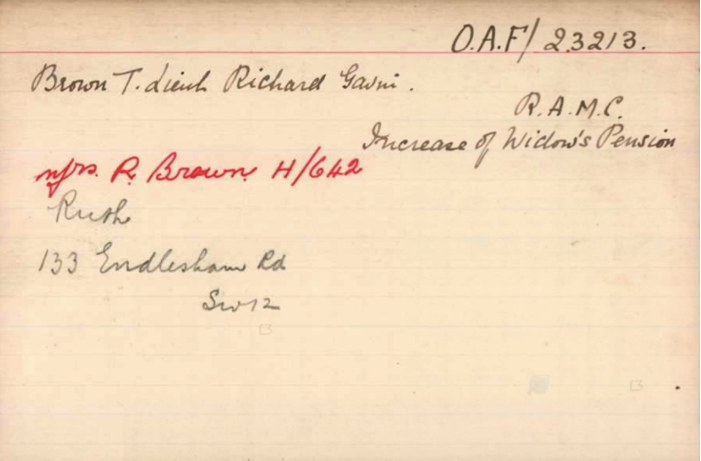 O.A.F/ 23213.
Brown T. Lieut Richard Gavin.
R.A.M.C.
Increase of Widow's Pension
Mrs. R. Brown. H/642
Ruth
133 Endlesham Rd
SW12